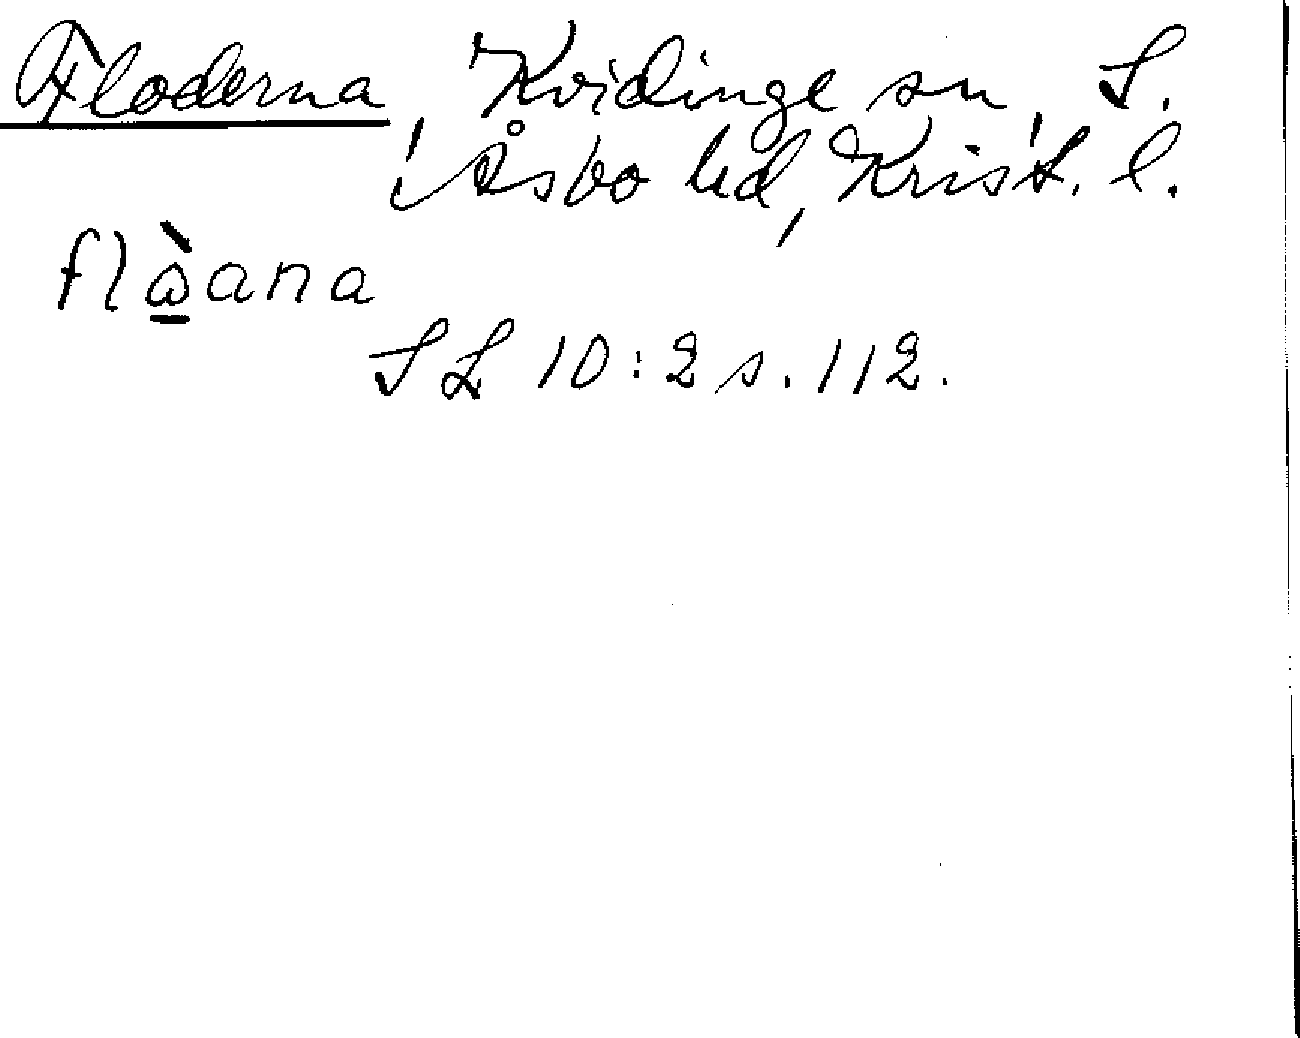 Floderna Kvidinge sn, S.
Åsbo hd, Krist. l.
flὼ̲ana
SL 10:2 s. 112.